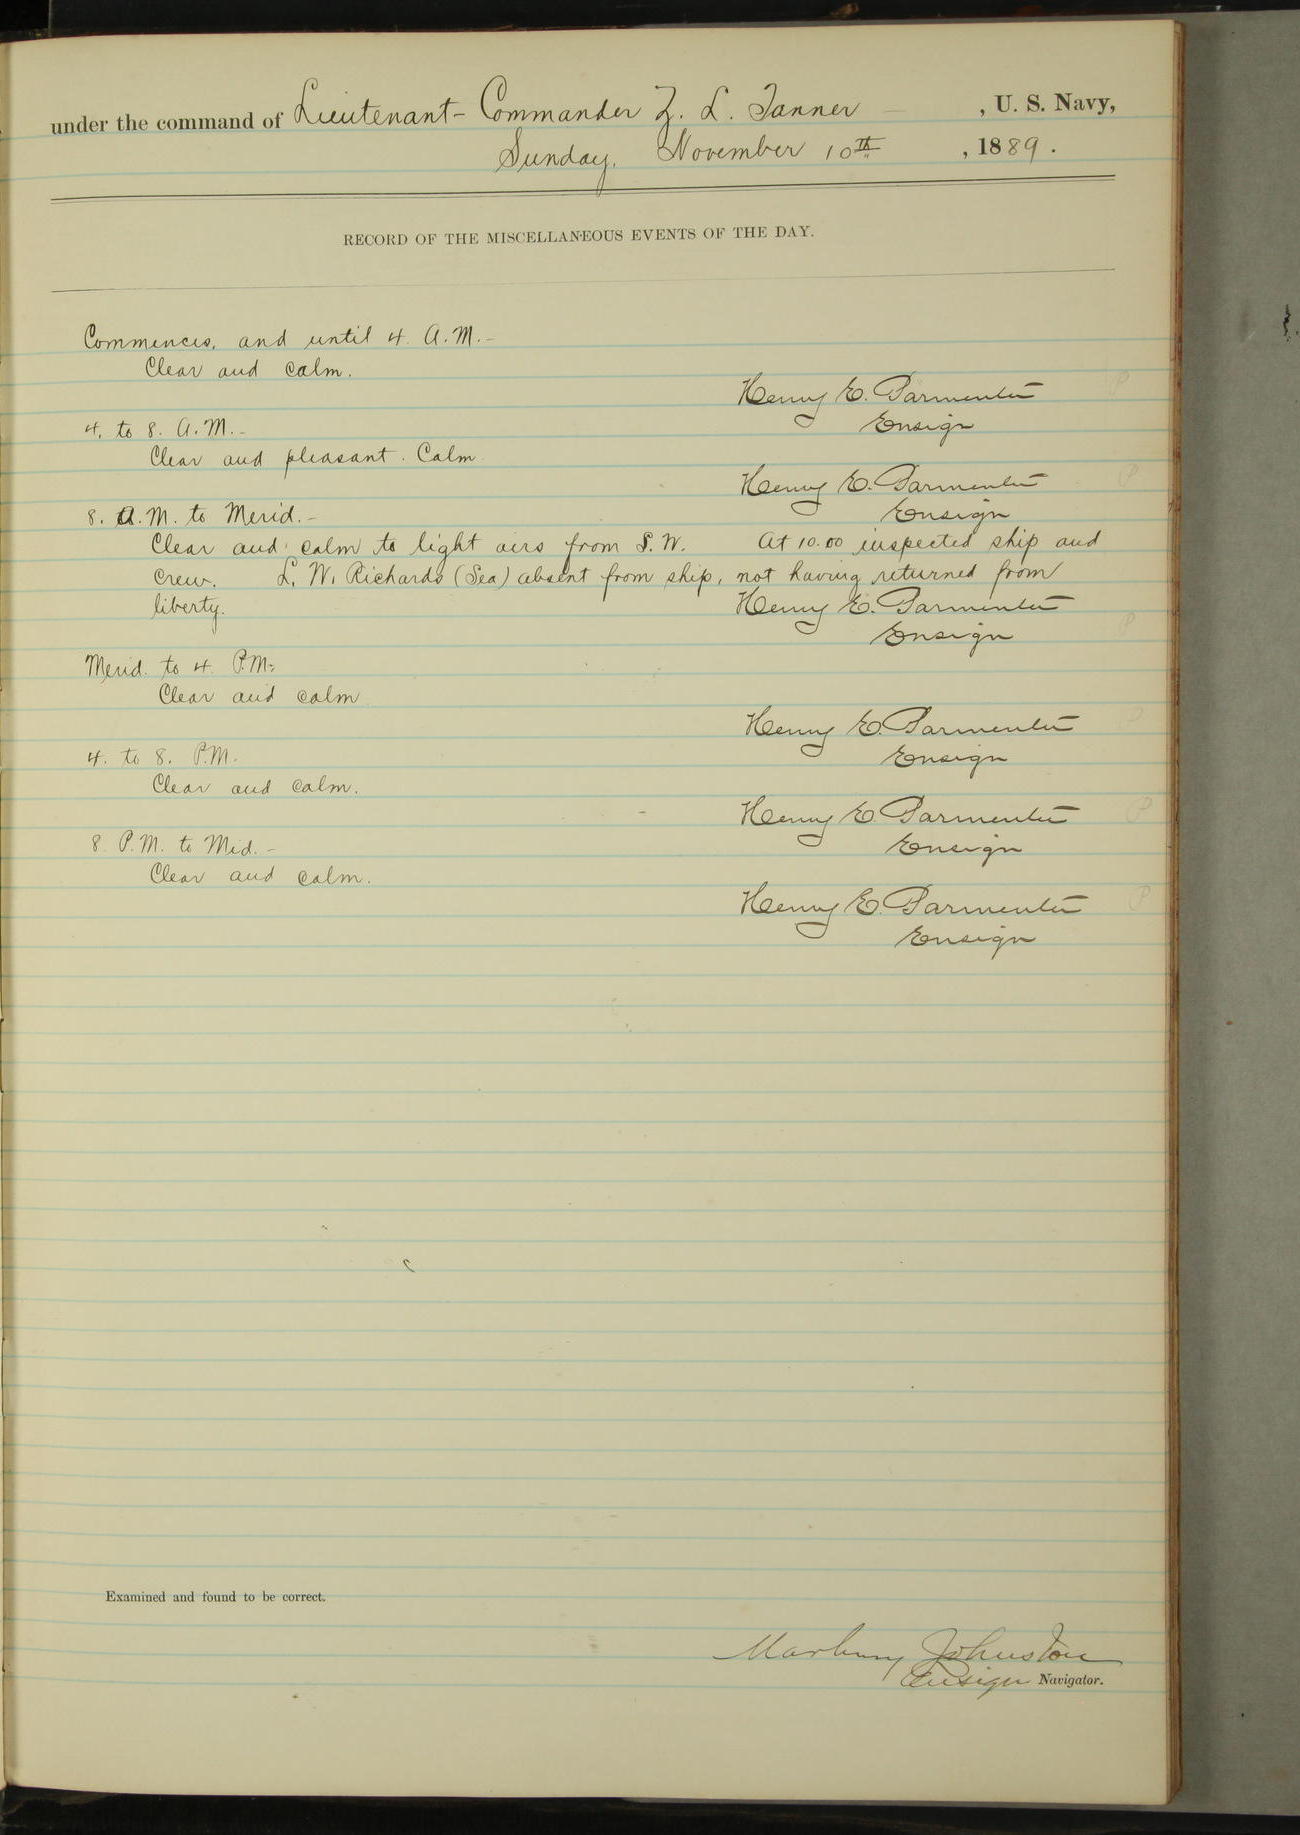 under the command of Lieutenant-Commander Z. L. Tanner , U. S. Navy,
Sunday, November 10th , 1889.
RECORD OF THE MISCELLANEOUS EVENTS OF THE DAY.
Commences, and until 4 A.M.-
Clear and calm.
Henry E. Parmenter
Ensign
4. to 8. A.M.-
Clear and pleasant. Calm
Henry E. Parmenter
Ensign
8. A.M. to Merid.-
Clear and calm to light airs from S.W. At 10.00 inspected ship and
crew. L. W. Richards (Sea) absent from ship, not having returned from
liberty.
Henry E. Parmenter
Ensign
Merid. to 4 P.M-
Clear and calm
Henry E. Parmenter
Ensign
4. to 8. P.M.
Clear and calm.
Henry E. Parmenter
Ensign
8 P.M. to Mid.-
Clear and calm.
Henry E. Parmenter
Ensign
Examined and found to be correct.
Marbury Johnston
Ensign Navigator.